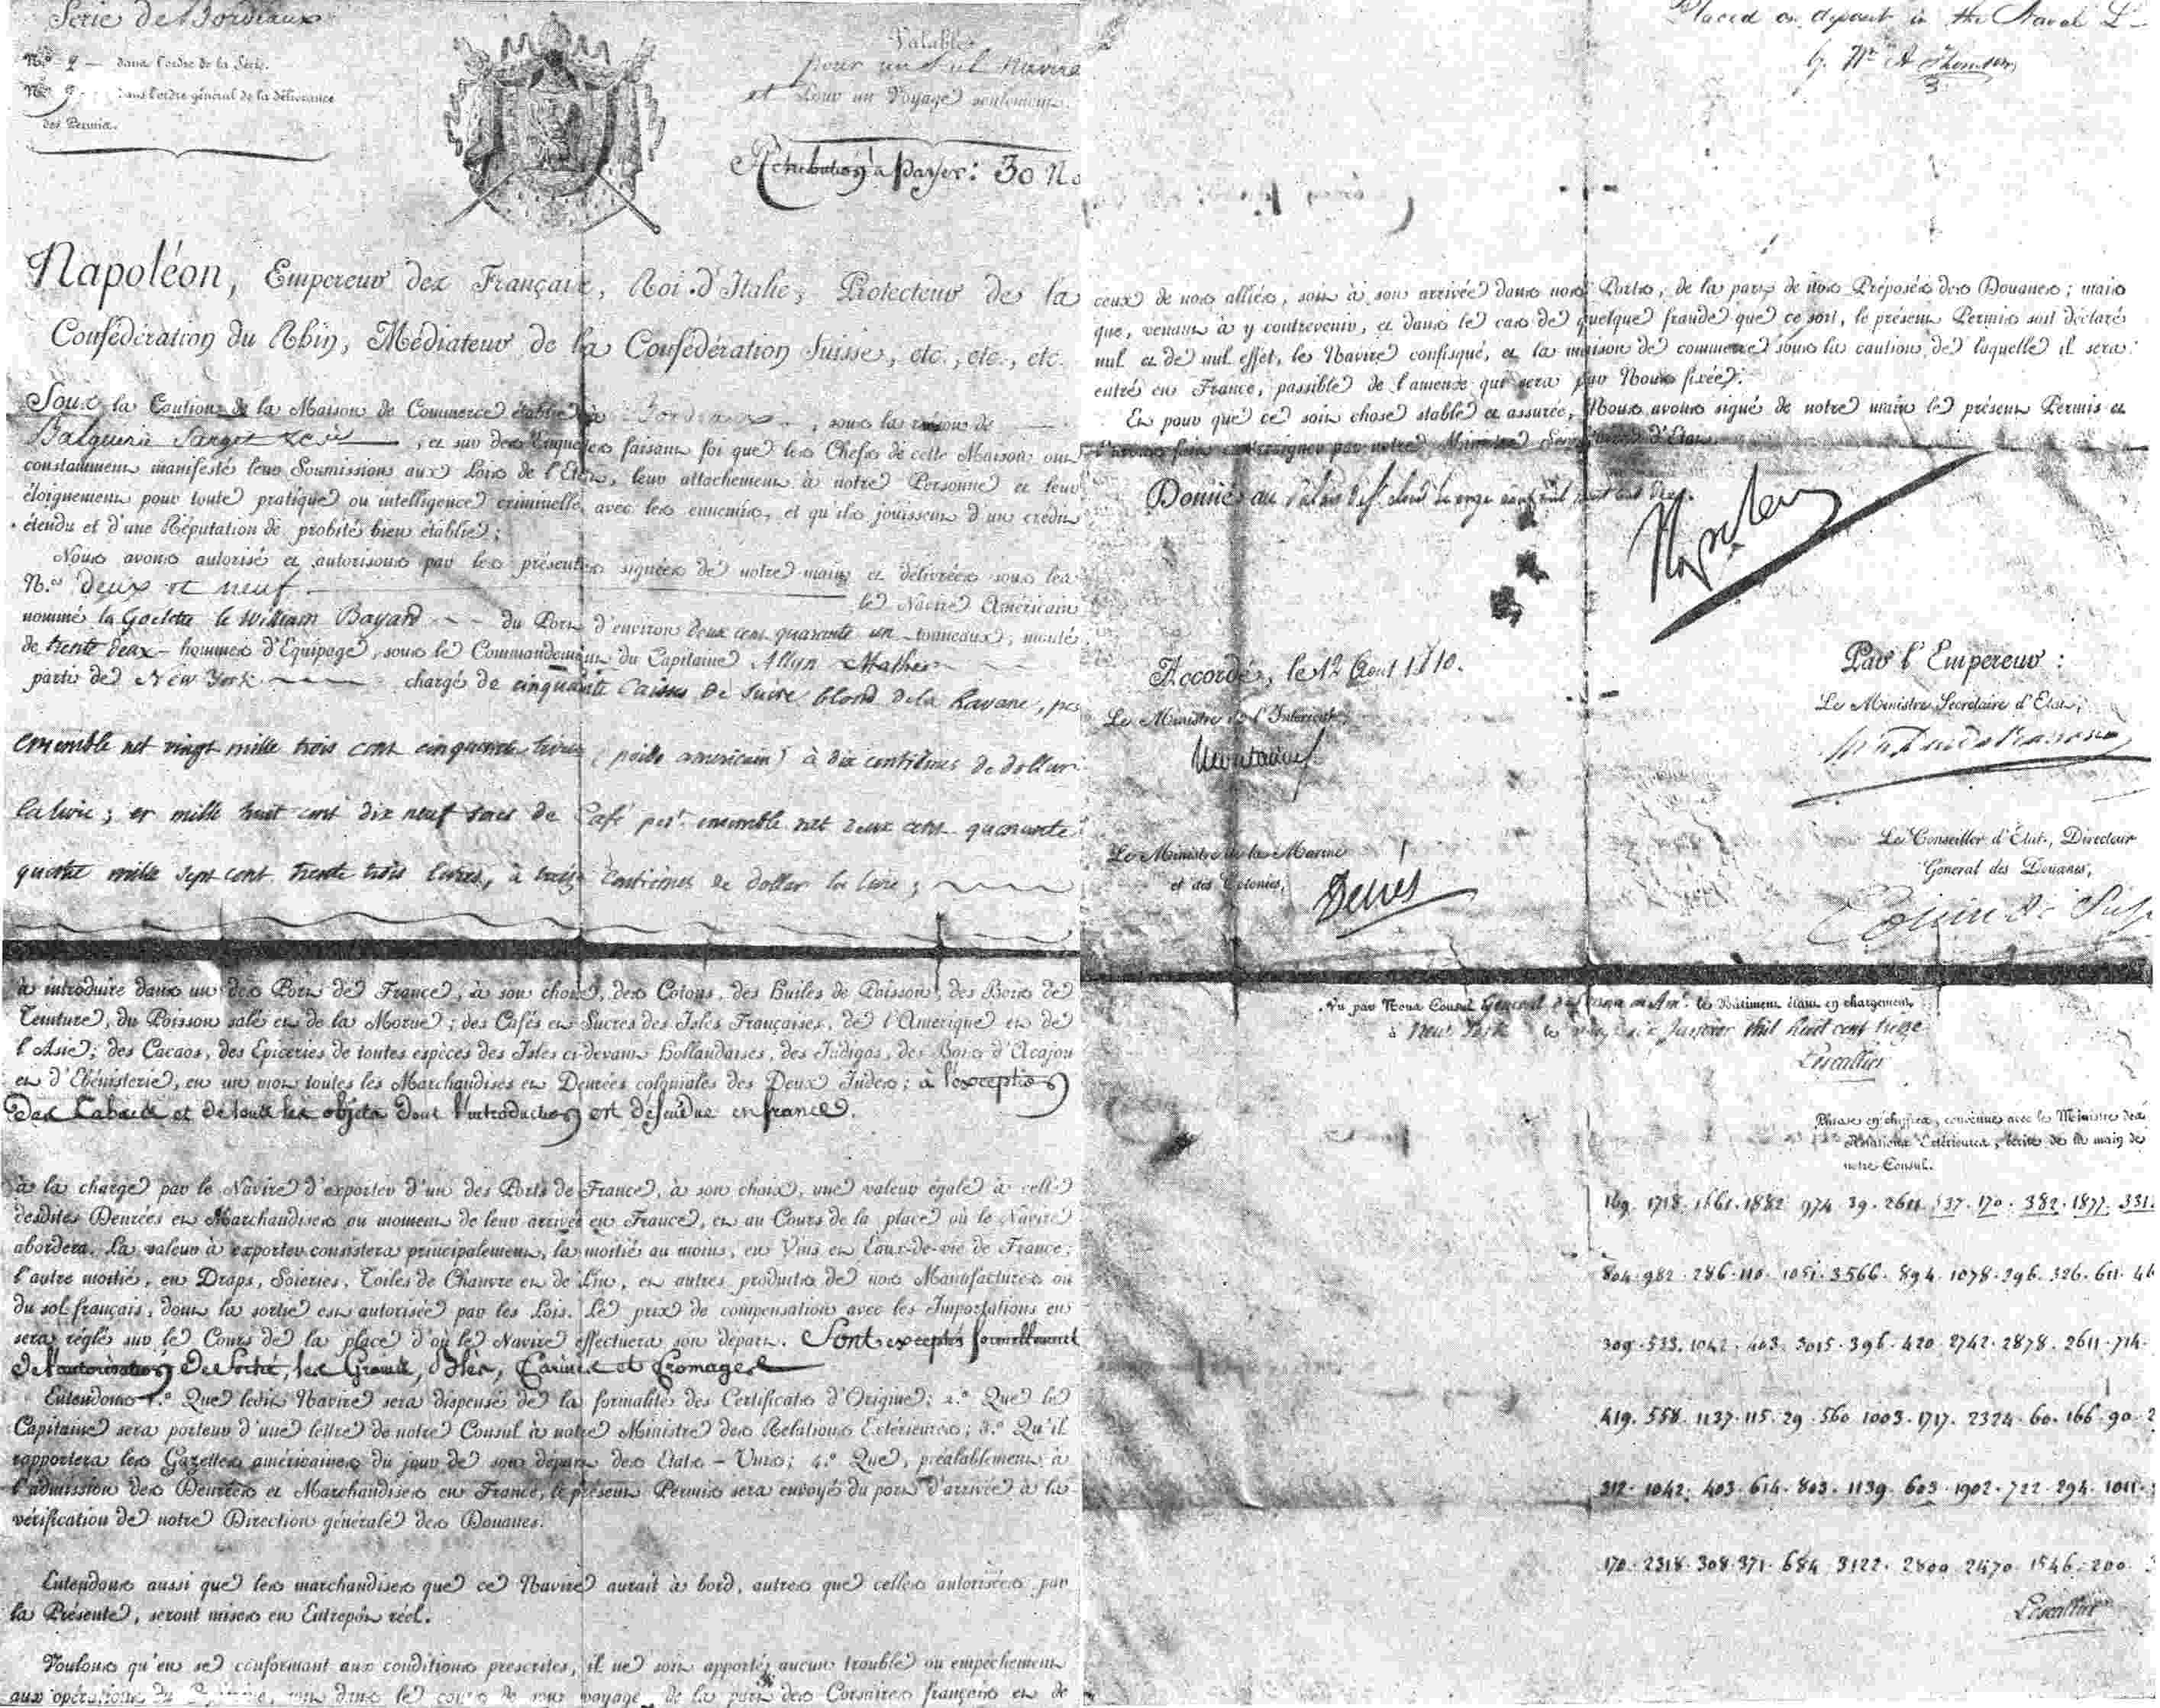 Série de Bordeaux
N.º 2 — dans l'ordre de la Série.
N.º 9 — dans l'ordre général de la délivrance
des Permis.
Valable
pour un seul Navire
et pour un Voyage seulement.
Rétribution à payer: 30 No
Napoléon, Empereur des Français, Roi d'Italie, Protecteur de la
Confédération du Rhin, Médiateur de la Confédération Suisse, etc., etc., etc.
Sous la Caution de la Maison de Commerce établie à Bordeaux, sous la raison de
Balguerie Sarget, et sur des Enquêtes faisant foi que les Chefs de cette Maison ont
constamment manifesté leur Soumission aux Lois de l'Etat, leur attachement à notre Personne et leur
éloignement pour toute pratique ou intelligence criminelle avec les ennemis, et qu'ils jouissent d'un crédit
étendu et d'une Réputation de probité bien établie;
Nous avons autorisé et autorisons par les présentes signées de notre main et délivrées sous les
N.os deux et neuf le Navire Américain
nommé la Goelette le William Bayard du Port d'environ deux cent quarante un tonneaux, monté
de trente deux hommes d'Equipage, sous le Commandement du Capitaine Allyn Mather
parti de New York chargé de cinquante Caisses de Sucre blond de la havane, pes
ensemble net vingt mille trois cent cinquante livres (poids americain) à dix centièmes de dollar
la livre; et mille huit cent dix neuf sacs de Café pest ensemble net deux cent quarante
quatre mille sept cent trente trois livres, à treize centièmes de dollar la livre;
à introduire dans un des Ports de France, à son choix, des Cotons, des Huiles de Poisson, des Bois de
Teinture, du Poisson salé et de la Morue; des Cafés et Sucres des Isles Françaises, de l'Amérique et de
l'Asie; des Cacaos, des Epiceries de toutes espèces des Isles ci-devant Hollandaises, des Indigos, des Bois d'Acajou
et d'Ebénisterie, en un mot toutes les Marchandises et Denrées coloniales des Deux Indes; à l'exception
des Tabacs et de tous les objets dont l'introduction est défendue en france.
à la charge par le Navire d'exporter d'un des Ports de France, à son choix, une valeur égale à celle
desdites Denrées et Marchandises au moment de leur arrivée en France, et au Cours de la place où le Navire
abordera. La valeur à exporter consistera principalement, la moitié au moins, en Vins et Eaux-de-vie de France;
l'autre moitié, en Draps, Soieries, Toiles de Chanvre et de Lin, et autres produits de nos Manufactures ou
du sol français, dont la sortie est autorisée par les Lois. Le prix de compensation avec les Importations en
sera réglé sur le Cours de la place d'où le Navire effectuera son départ. Sont exceptés formellement
de l'autorisation de Sortie, les Grains, Blés, Farines et Fromages
Entendons 1.º Que ledit Navire sera dispensé de la formalité des Certificats d'Origine; 2.º Que le
Capitaine sera porteur d'une lettre de notre Consul à notre Ministre des Relations Extérieures; 3.º Qu'il
rapportera les Gazettes américaines du jour de son départ des Etats-Unis; 4.º Que, préalablement à
l'admission des Denrées et Marchandises en France, le présent Permis sera envoyé du port d'arrivée à la
vérification de notre Direction générale des Douanes.
Entendons aussi que les marchandises que ce Navire aurait à bord, autres que celles autorisées par
la Présente, seront mises en Entrepôt réel.
Voulons qu'en se conformant aux conditions prescrites, il ne soit apporté aucun trouble ou empêchement
aux opérations du Navire, soit dans le cours de son voyage, de la part des Corsaires français et de
Placed on deposit in the Naval
by Wm A Thomson
ceux de nos alliés, soit à son arrivée dans nos Ports, de la part de nos Préposés des Douanes; mais
que, venant à y contrevenir, et dans le cas de quelque fraude que ce soit, le présent Permis soit déclaré
nul et de nul effet, le Navire confisqué, et la maison de commerce sous la caution de laquelle il sera
entré en France, passible de l'amende qui sera par Nous fixée.
Et pour que ce soit chose stable et assurée, Nous avons signé de notre main le présent Permis et
l'avons fait contresigner par notre Ministre Secrétaire d'Etat.
Donné au Palais de St. cloud le onze
Accordé, le 12 Aout 1810.
Par l'Empereur:
Le Ministre de l'Intérieur,
Montalivet
Le Ministre Secrétaire d'Etat,
Le Ministre de la Marine
et des Colonies,
Decrès
Le Conseiller d'Etat, Directeur
Général des Douanes,
Collin de Sus
Vu par Nous Consul Général de france en Amque le Bâtiment étant en chargement
à New York le vingt six Janvier Mil huit cent treize
Lescallier
Phrase en chiffres, convenue avec le Ministre des
Relations Extérieures, écrite de la main de
notre Consul.
169. 1718. 1661. 1882. 974. 39. 2611. 537. 170. 382. 1877. 331.
804. 982. 286. 110. 1051. 3566. 894. 1078. 396. 326. 611. 46
309. 533. 1042. 403. 3015. 396. 420. 2742. 2878. 2611. 714.
419. 558. 1137. 115. 29. 560. 1003. 1717. 2324. 60. 166. 90. 2
312. 1042. 403. 614. 803. 1139. 603. 1902. 722. 294. 1011.
170. 2318. 308. 371. 684. 3122. 2800. 2470. 1546. 200.
Lescallier